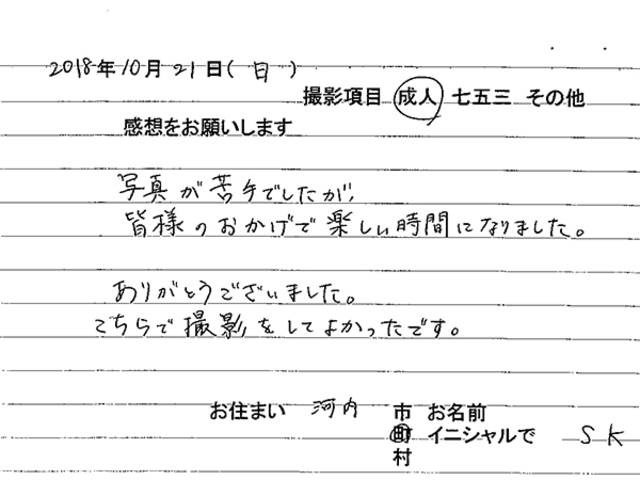 2018年10月21日(日)
撮影項目 成人 七五三 その他
感想をお願いします
写真が苦手でしたが、
皆様のおかげで楽しい時間になりました。
ありがとうございました。
こちらで撮影をしてよかったです。
お住まい 河内 市 お名前
町 イニシャルで SK
村